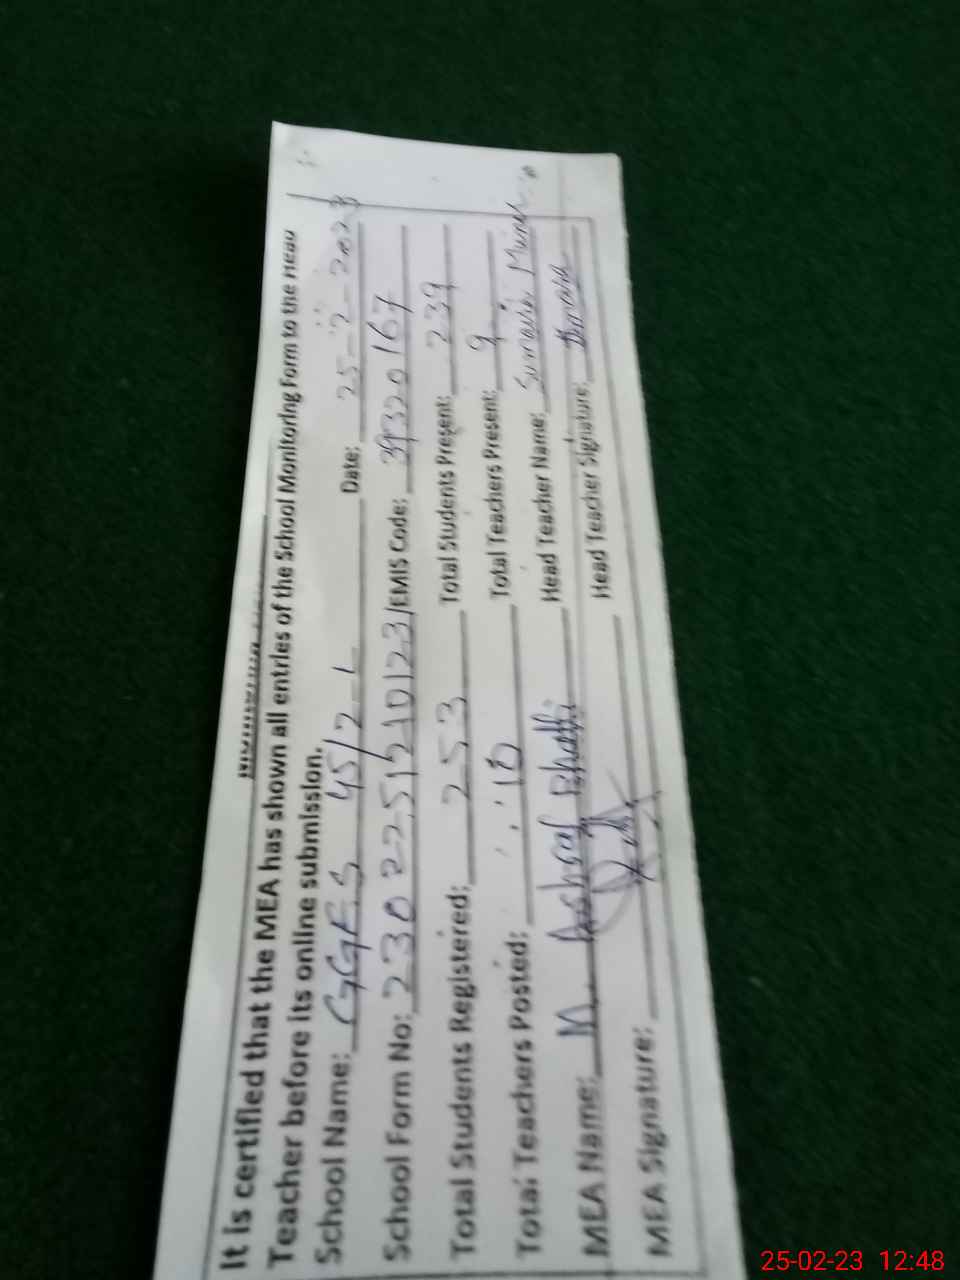 It is certified that the MEA has shown all entries of the School Monitoring Form to the Head
Teacher before its online submission.
School Name: GGES 45/2-L Date: 25-2-2023
School Form No: 2302251210123 EMIS Code: 39320167
Total Students Registered: 253 Total Students Present: 239
Total Teachers Posted: 10 Total Teachers Present: 9
MEA Name: M. Ashraf Bhatti Head Teacher Name: Sumaira Munir
MEA Signature: Head Teacher Signature:
25-02-23 12:48